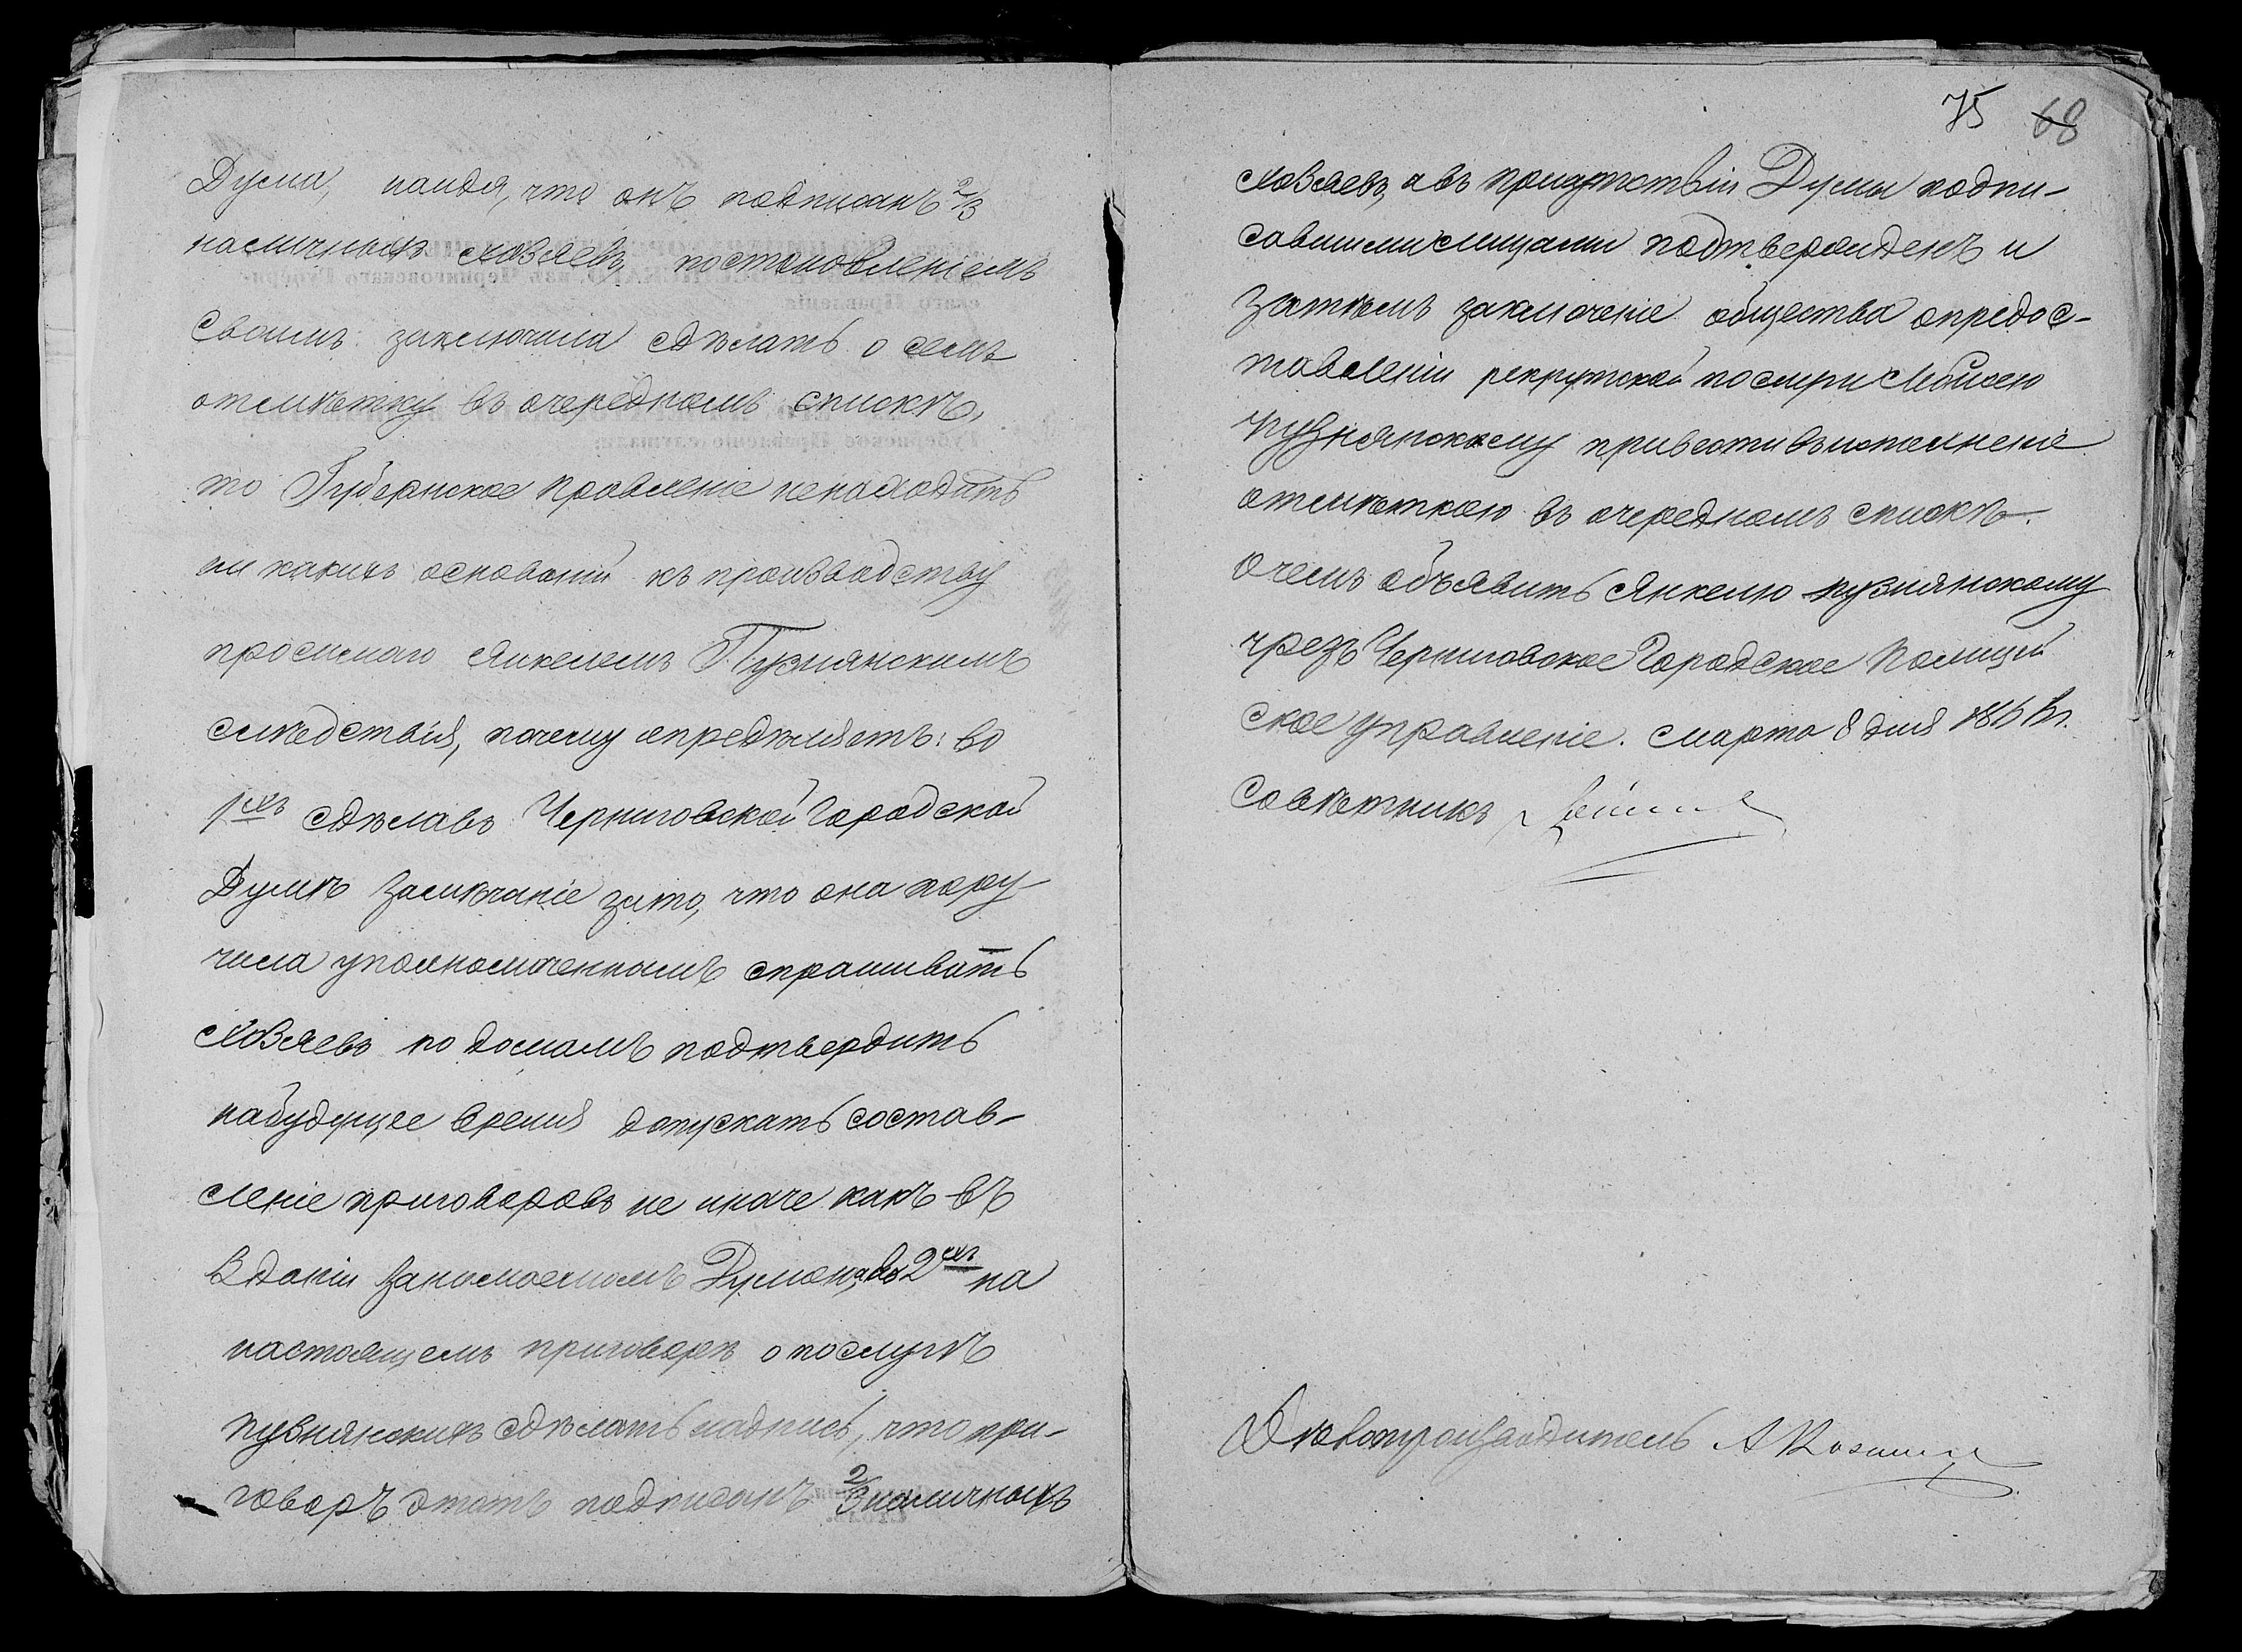 Дума, найдя, что онъ подписанъ 2/3
наличныхъ хозяевъ, постановленіемъ
своимъ заключила сдѣлать о семъ
отмѣтку въ очередномъ спискѣ,
то Губернское Правленіе ненаходитъ
ни какихъ основаній къ производству
просимаго Янкелемъ Пузнянскимъ
слѣдствія, почему опредѣляетъ: во
1хъ сдѣлавъ Черниговской Городской
Думѣ замѣчаніе зато, что она пору-
чила уполномоченнымъ спрашивать
хозяевъ по домамъ подтвердить
набудущее время допускать состав-
леніе приговоровъ не иначе какъ въ
зданіи занимаемомъ Думою, а во 2хъ на
настоящемъ приговорѣ о послугѣ
Пузнянскихъ сдѣлать надпись, что при-
говоръ этотъ подписанъ 2/3 наличныхъ
75 68
хозяевъ, а въ присутствіи Думы подпи-
савшими лицами подтвержденъ и
затѣмъ заключеніе общества опредос-
тавленіи рекрутской послуги Мовшею
Пузнянскому привести въ исполненіе
отмѣткою въ очередномъ спискѣ.
О чемъ объявить Янкелю Пузнянскому
чрезъ Черниговское Городское Полицей
ское управленіе. Марта 8 дня
Совѣтникъ
Дѣлопроизводитель А